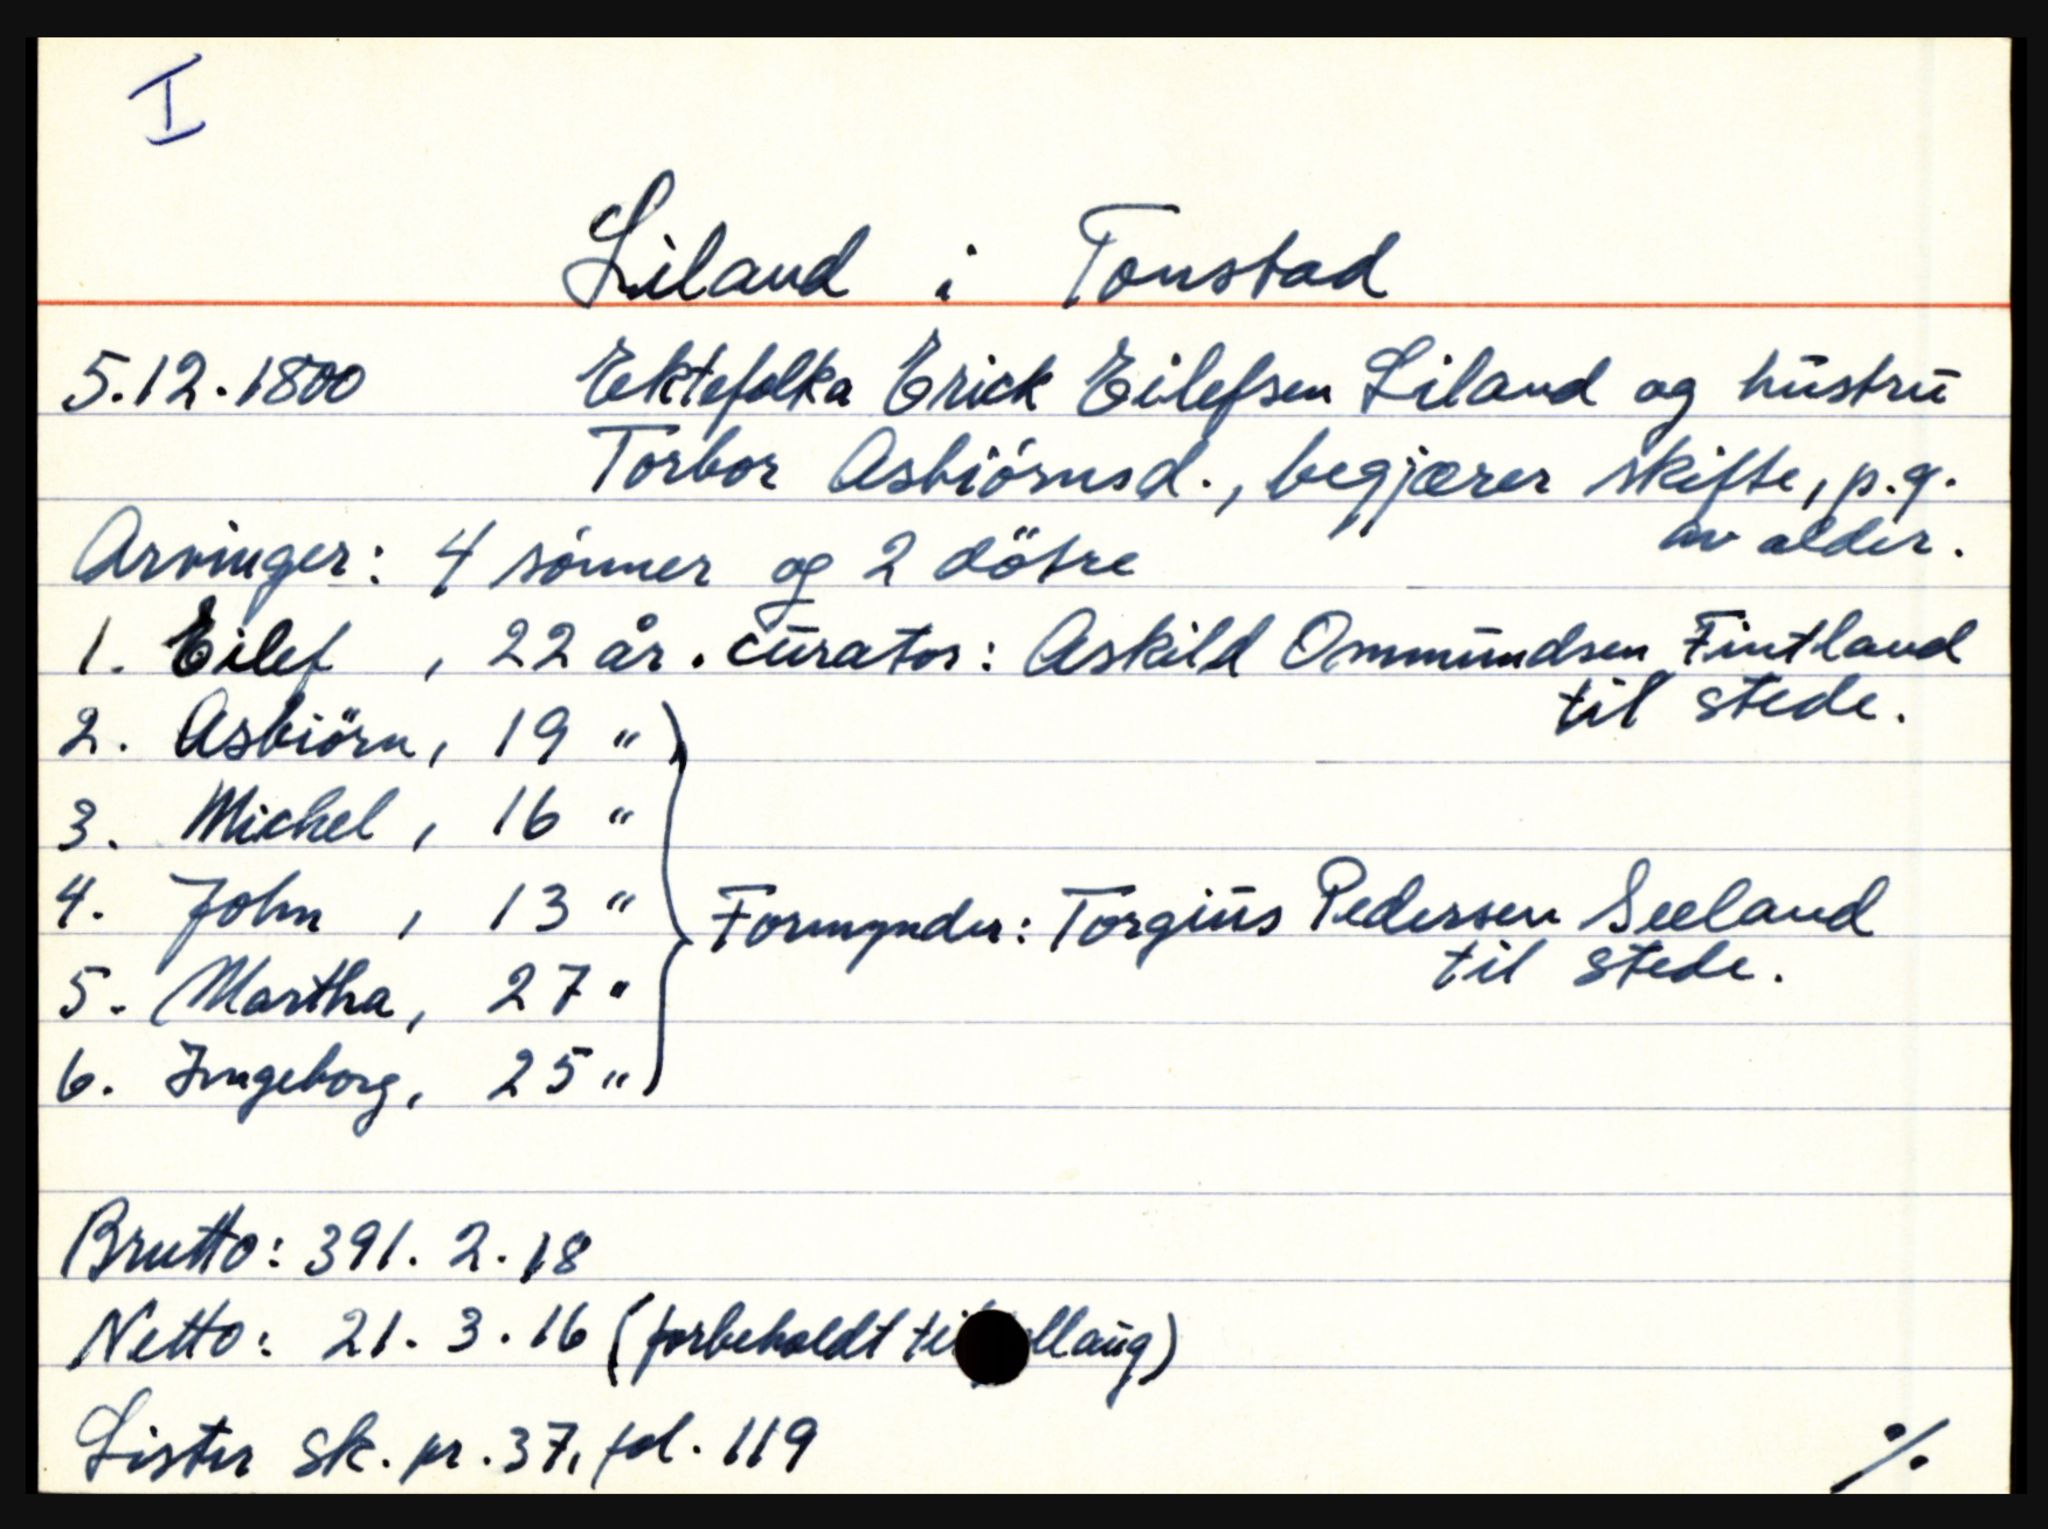 I
Liland i Tonstad
5.12.1800 Ektefolka Erick Eilefsen Liland og hustru
Torbor Asbiörnsd., begjærer skifte, p.g.
av alder.
Arvinger: 4 sönner og 2 dötre
1. Eilef, 22 år. curator: Askild Ommundsen Fintland
til stede.
2. Asbiörn, 19 "
3. Michel, 16 "
4. John, 13 "
Formynder: Torgius Pedersen Seeland
til stede.
5. Martha, 27 "
6. Ingeborg, 25 "
Brutto: 391. 2. 18
Netto: 21. 3. 16 (forbeholdt
Lister sk. pr. 37, fol. 119
%